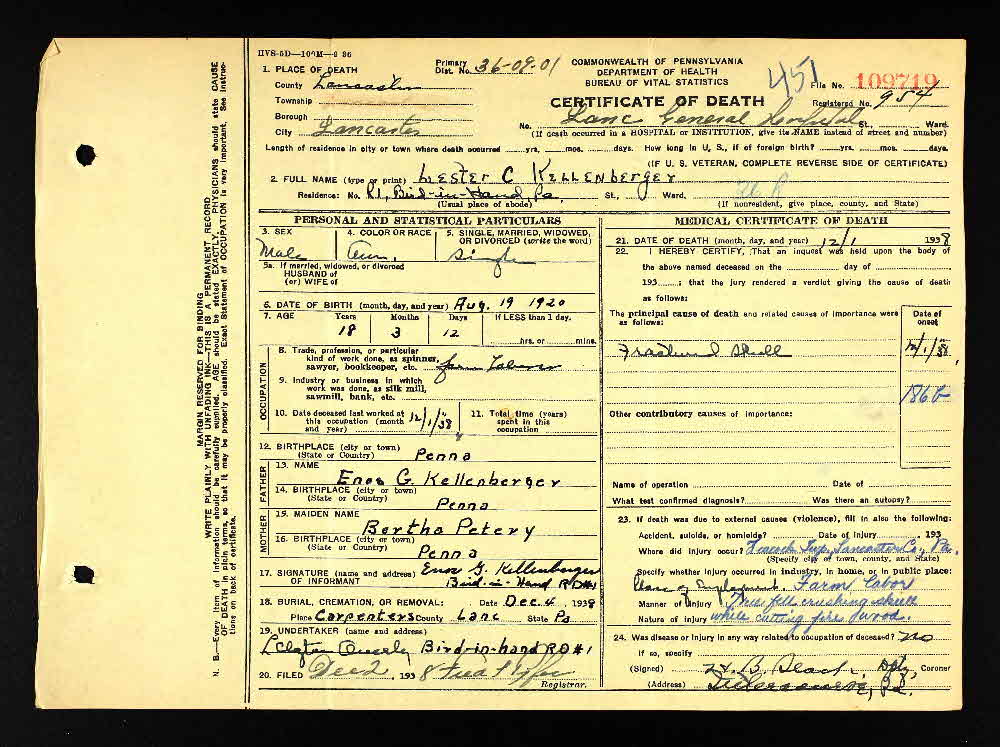 HVS-5D—100M—9 36
1. PLACE OF DEATH
County Lancaster
Township
Borough
City Lancaster
Primary Dist. No. 36-09-01
COMMONWEALTH OF PENNSYLVANIA
DEPARTMENT OF HEALTH
BUREAU OF VITAL STATISTICS
CERTIFICATE OF DEATH
451
File No. 109719
Registered No. 954
No. Lanc General Hospital St., Ward.
(If death occurred in a HOSPITAL or INSTITUTION, give its NAME instead of street and number)
Length of residence in city or town where death occurred yrs. mos. days. How long in U. S., if of foreign birth? yrs. mos. days.
(IF U. S. VETERAN, COMPLETE REVERSE SIDE OF CERTIFICATE)
2. FULL NAME (type or print) LESTER C KELLENBERGER
Residence: No. R1, Bird-in-Hand Pa. St., Ward,
(Usual place of abode)
(If nonresident, give place, county, and State)
PERSONAL AND STATISTICAL PARTICULARS
3. SEX
Male
4. COLOR OR RACE
5. SINGLE, MARRIED, WIDOWED, OR DIVORCED (write the word)
Single
5a. If married, widowed, or divorced
HUSBAND of
(or) WIFE of
6. DATE OF BIRTH (month, day, and year) Aug. 19 1920
7. AGE Years Months Days If LESS than 1 day,
18 3 12
hrs. or mins.
OCCUPATION
8. Trade, profession, or particular
kind of work done, as spinner,
sawyer, bookkeeper, etc. farm laborer
9. Industry or business in which
work was done, as silk mill,
sawmill, bank, etc.
10. Date deceased last worked at
this occupation (month
and year) 12/1/38
11. Total time (years)
spent in this
occupation
12. BIRTHPLACE (city or town)
(State or Country) Penna
FATHER
13. NAME
Enos G. Kellenberger
14. BIRTHPLACE (city or town)
(State or Country) Penna
MOTHER
15. MAIDEN NAME
Bertha Petery
16. BIRTHPLACE (city or town)
(State or Country) Penna
17. SIGNATURE (name and address) Enos G. Kellenberger
OF INFORMANT Bird-in-Hand RD#1
18. BURIAL, CREMATION, OR REMOVAL: Date Dec. 4, 1938
Place Carpenters County Lanc State Pa
19. UNDERTAKER (name and address)
Bird-in-hand RD#1
20. FILED 193 8
Registrar.
MEDICAL CERTIFICATE OF DEATH
21. DATE OF DEATH (month, day, and year) 12/1 1938
22. I HEREBY CERTIFY, That an inquest was held upon the body of
the above named deceased on the day of
193 ; that the jury rendered a verdict giving the cause of death
as follows:
The principal cause of death and related causes of importance were
as follows:
Date of
onset
Fractured Skull 12/1/38
186 b
Other contributory causes of importance:
Name of operation Date of
What test confirmed diagnosis? Was there an autopsy?
23. If death was due to external causes (violence), fill in also the following:
Accident, suicide, or homicide? Date of injury 193
Where did injury occur? Twp, Lancaster Co., Pa.
(Specify city or town, county, and State)
Specify whether injury occurred in industry, in home, or in public place:
Place of Employment. Farm labor
Manner of injury Tree fell crushing skull
Nature of injury while cutting fire wood.
24. Was disease or injury in any way related to occupation of deceased? no
If so, specify
(Signed) Dpty. Coroner
(Address) Pa.
MARGIN RESERVED FOR BINDING
WRITE PLAINLY WITH UNFADING INK—THIS IS A PERMANENT RECORD
N. B.—Every item of information should be carefully supplied. AGE should be stated EXACTLY. PHYSICIANS should state CAUSE
OF DEATH in plain terms, so that it may be properly classified. Exact Statement of OCCUPATION is very important. See instruc-
tions on back of certificate.